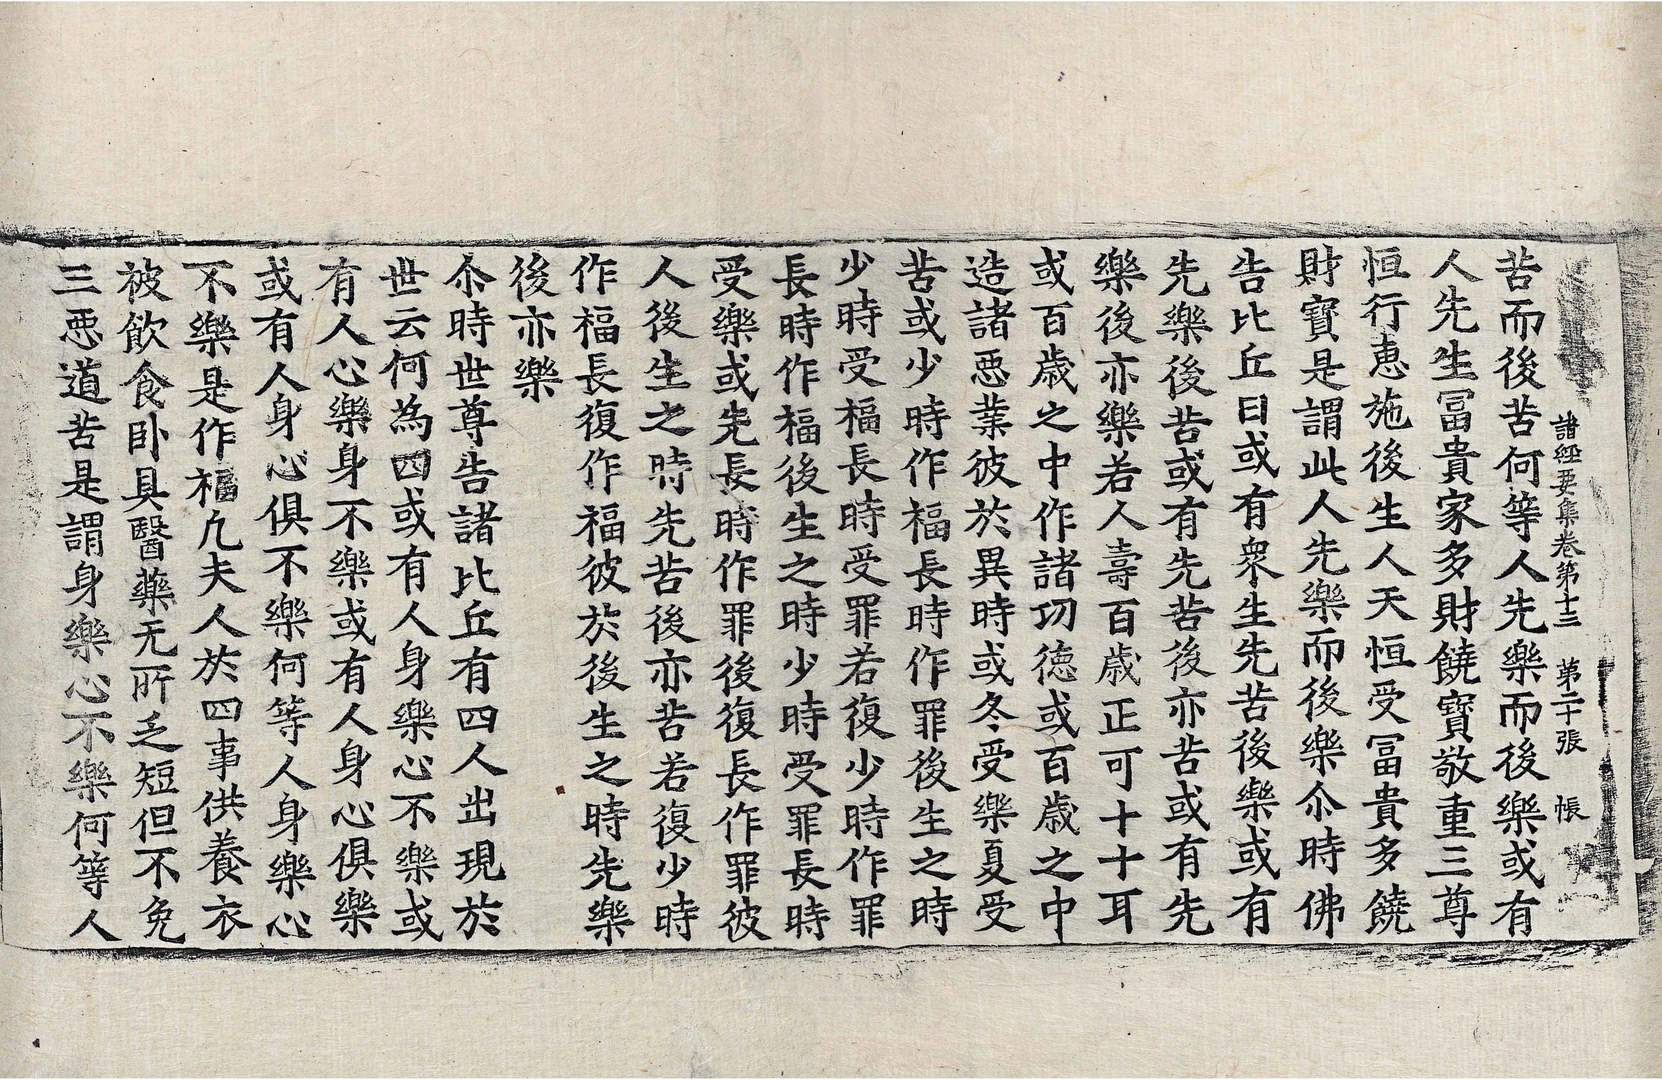 諸經要集卷第十三 第二十張 帳
苦而後苦何等人先樂而後樂或有
人先生冨貴家多財饒寶敬重三尊
恒行恵施後生人天恒受冨貴多饒
財寶是謂此人先樂而後樂尒時佛
告比丘曰或有衆生先苦後樂或有
先樂後苦或有先苦後亦苦或有先
樂後亦樂若人壽百歳正可十十耳
或百歳之中作諸㓛德或百歳之中
造諸惡業彼於異時或冬受樂夏受
苦或少時作福長時作罪後生之時
少時受福長時受罪若復少時作罪
長時作福後生之時少時受罪長時
受樂或先長時作罪後復長作罪彼
人後生之時先苦後亦苦若復少時
作福長復作福彼於後生之時先樂
後亦樂
尒時世尊告諸比丘有四人出現於
世云何為四或有人身樂心不樂或
有人心樂身不樂或有人身心俱樂
或有人身心俱不樂何等人身樂心
不樂是作福凢夫人於四事供養衣
被飲食卧具醫藥无所乏短但不免
三惡道苦是謂身樂心不樂何等人